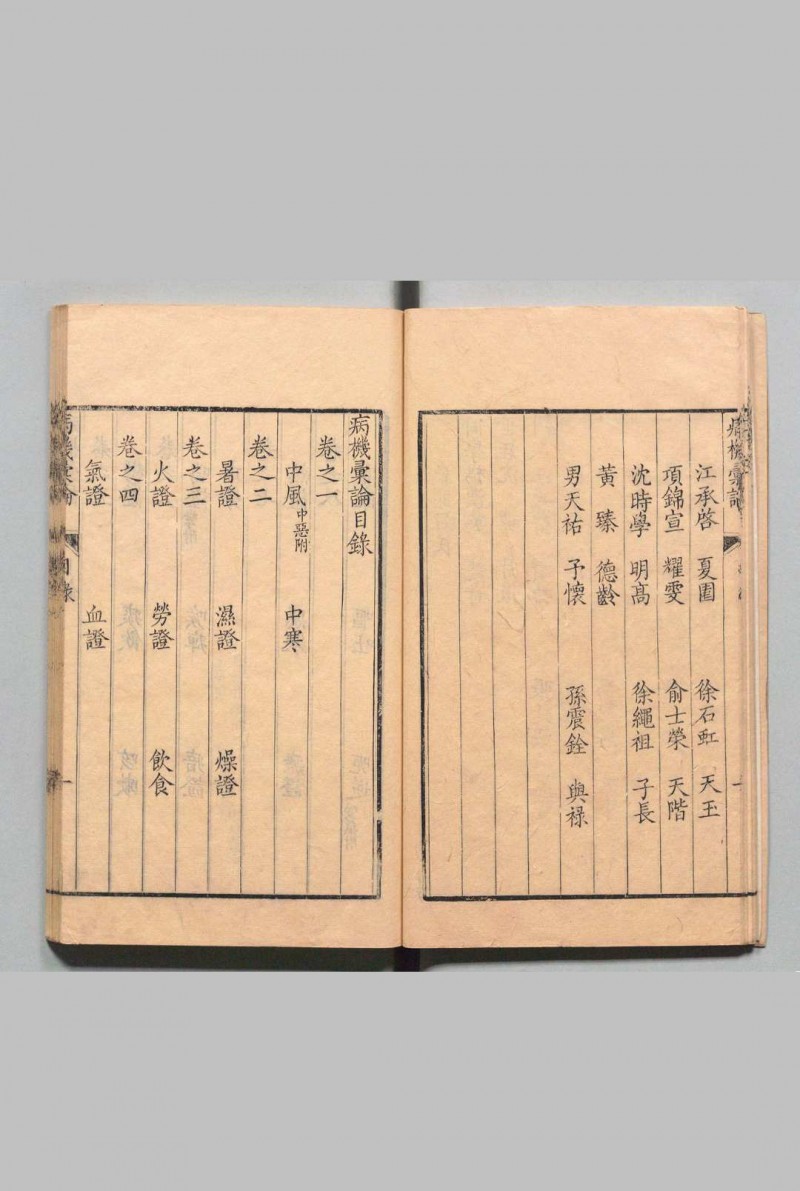 江承啓 夏園 徐石虹 天玉
項錦宣 耀雯 俞士榮 天階
沈時學 明高 徐繩祖 子長
黃臻 德齡
男天祐 予懷 孫震銓 與祿
病機彙論目錄
卷之一
中風中惡附 中寒
卷之二
暑證 濕證 燥證
卷之三
火證 勞證 飲食
卷之四
氣證 血證
病機彙論 目錄 一